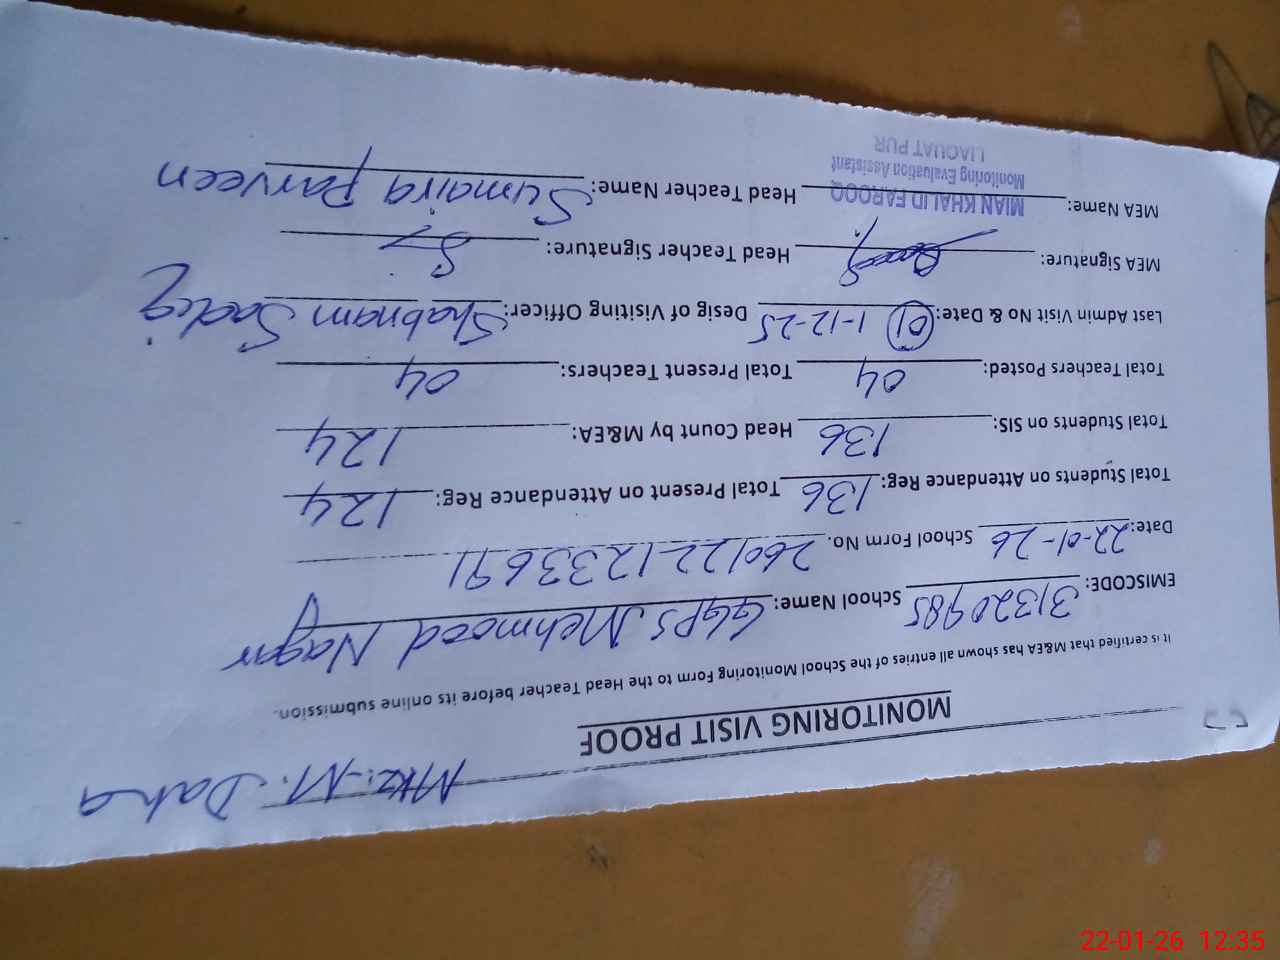 Mkz:-M. Daha
MONITORING VISIT PROOF
It is certified that M&EA has shown all entries of the School Monitoring Form to the Head Teacher before its online submission.
EMISCODE: 31320985 School Name: GGPS Mehmood Nagar
Date: 22-01-26 School Form No. 2601221233691
Total Students on Attendance Reg: 136 Total Present on Attendance Reg: 124
Total Students on SIS: 136 Head Count by M&EA: 124
Total Teachers Posted: 04 Total Present Teachers: 04
Last Admin Visit No & Date: 01 1-12-25 Desig of Visiting Officer: Shabnam Sadiq
MEA Signature: Head Teacher Signature:
MEA Name: MIAN KHALID FAROOQ Head Teacher Name: Sumaira Parveen
Monitoring Evaluation Assistant
LIAQUAT PUR
22-01-26 12:35